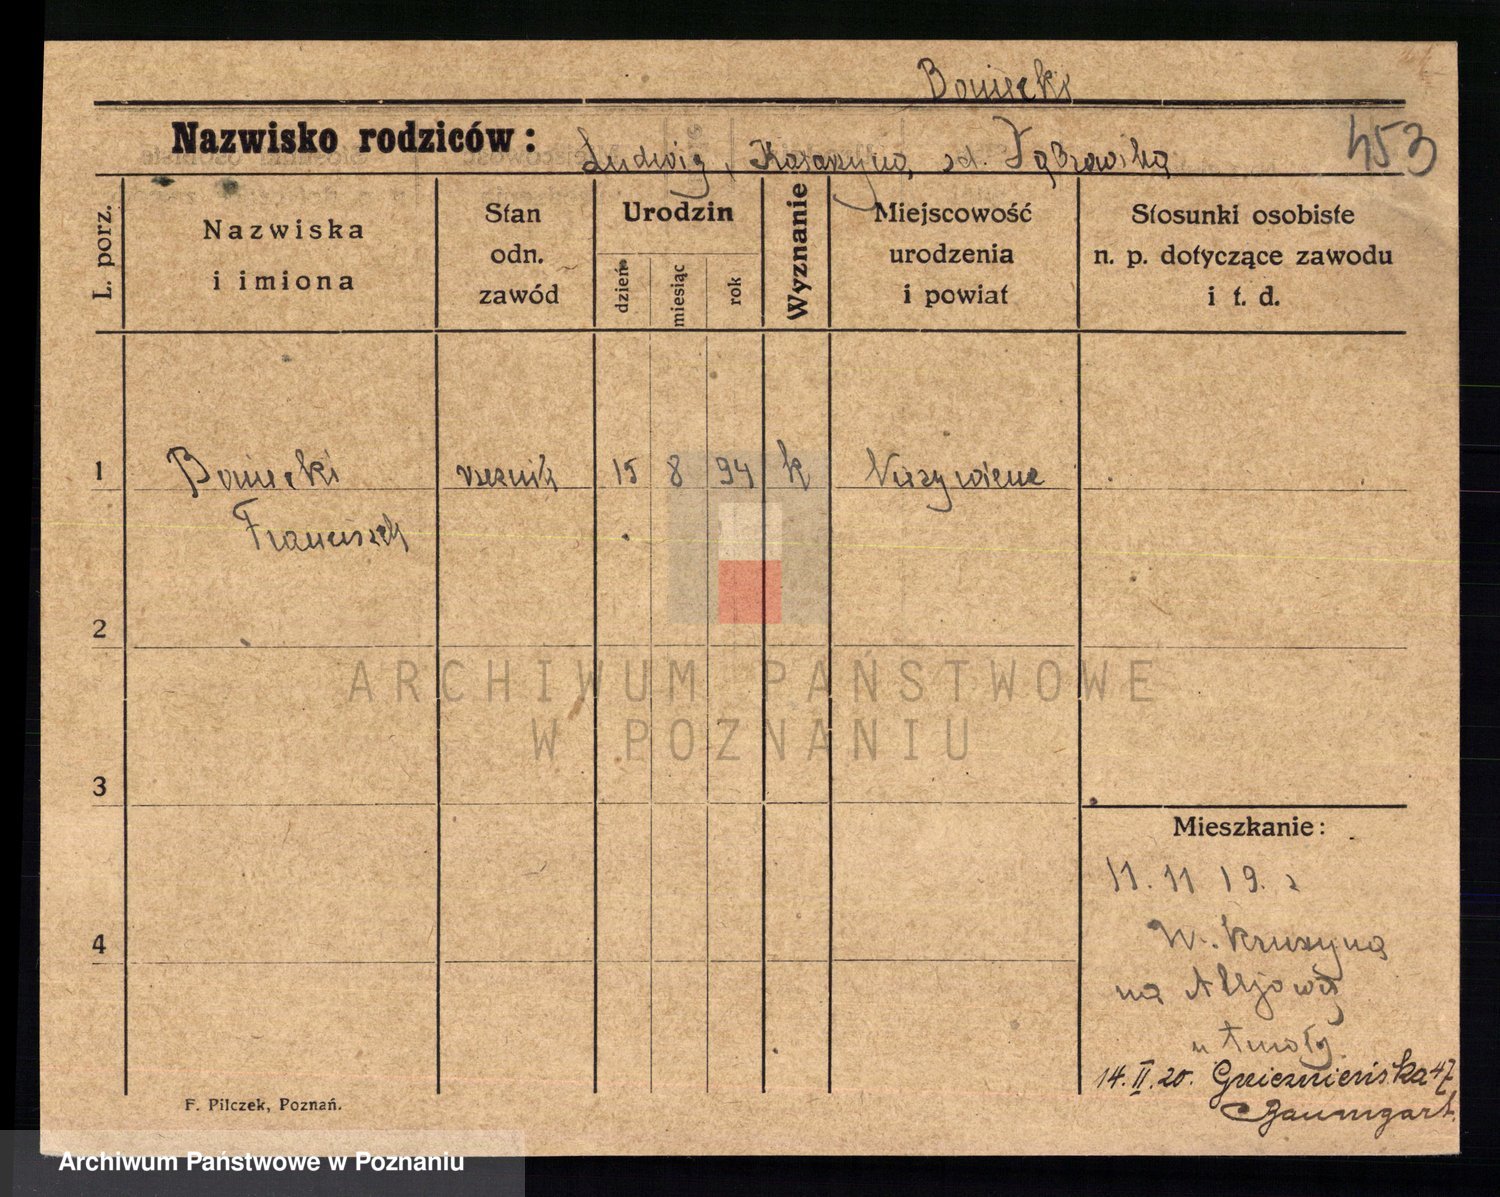 Boniecki
Nazwisko rodziców: Ludwig, Katarzyna, zd. Dąbrowska 453
L. porz.
Nazwiska i imiona
Stan odn. zawód
Urodzin
dzień miesiąc rok
Wyznanie
Miejscowość urodzenia i powiat
Stosunki osobiste n. p. dotyczące zawodu i t. d.
1 Boniecki rzeźnik 15 8 94 k
Franciszek
2
3
4
Mieszkanie:
11. 11 19.
W.
na Alejową
u
14. II. 20. Gnieznieńska 47
Baumgart.
F. Pilczek, Poznań.
ARCHIWUM PAŃSTWOWE
W POZNANIU
Archiwum Państwowe w Poznaniu